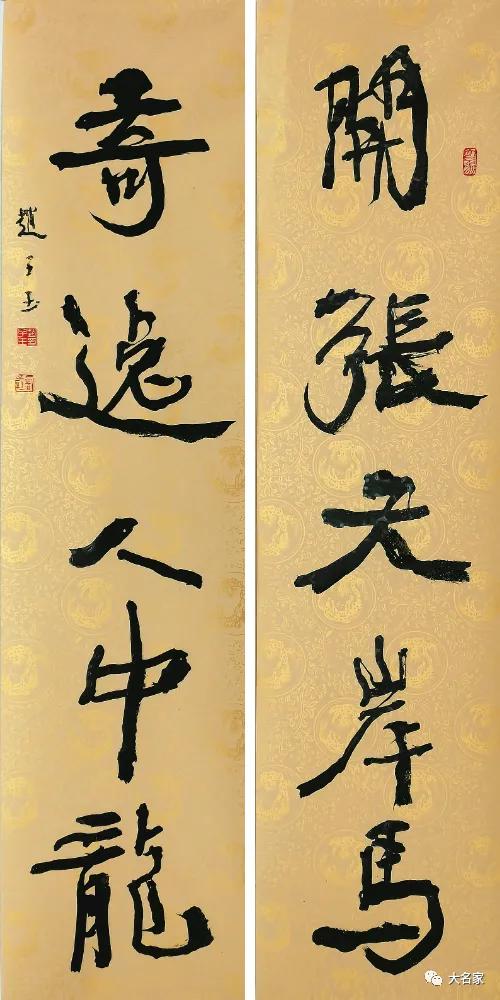 開張天岸馬
奇逸人中龍
趙子玉
大名家